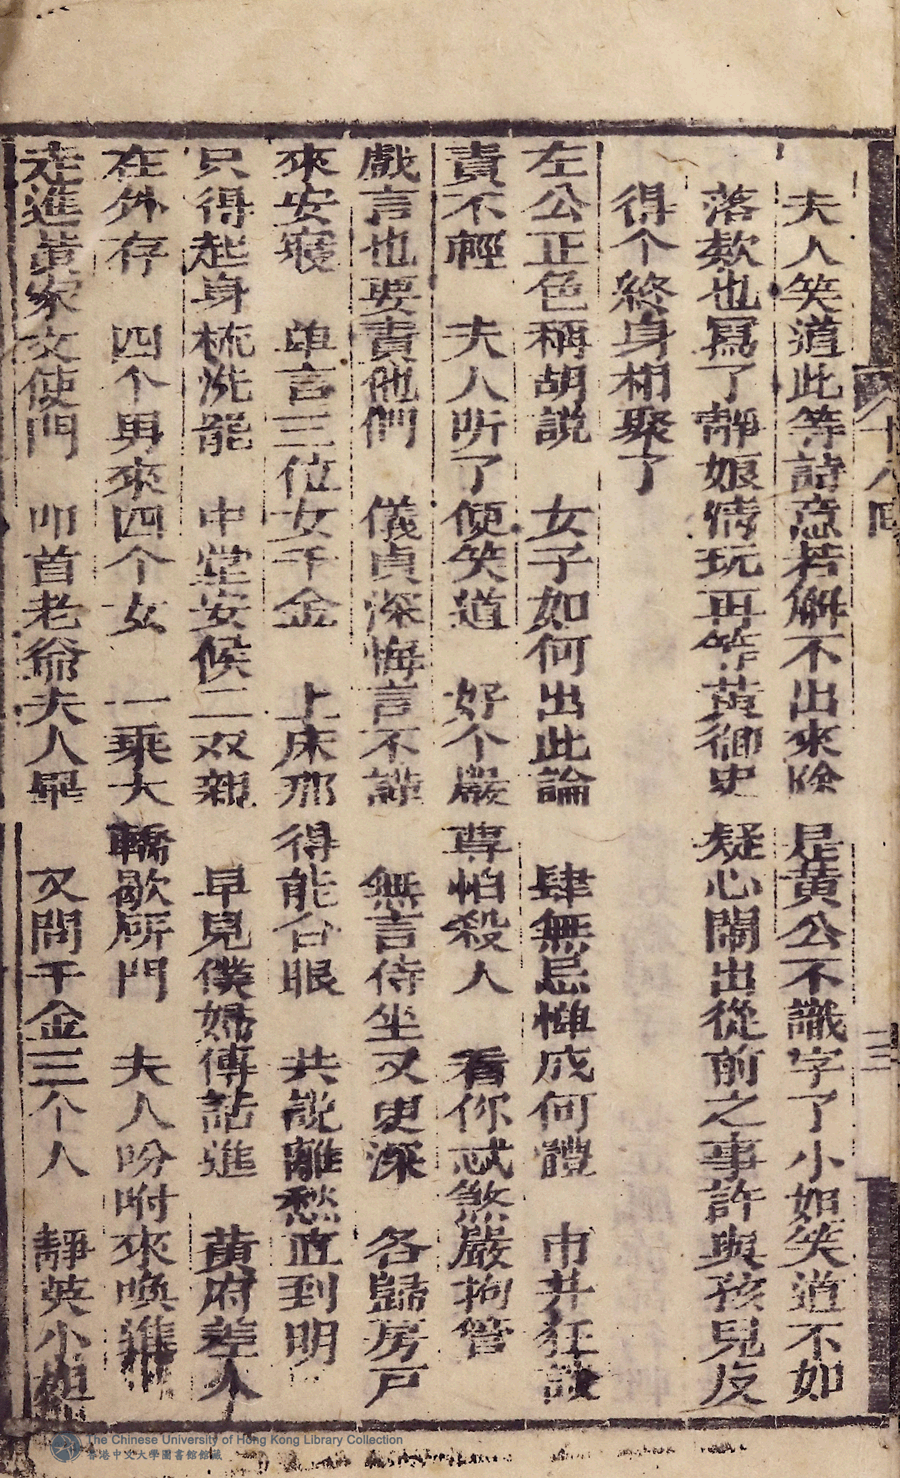 十八回
三
夫人笑道此等詩意若解不出來除是黄公不識字了小姐笑道不如
落欵也冩了靜娘倩玩再等黄御史疑心鬧出從前之事許與孩兒反
得个終身相聚了
左公正色稱胡説　女子如何出此論　肆無忌惮成何體　市井狂談
責不輕　夫人听了便笑道　好个嚴尊怕殺人　看你忒煞嚴拘管
戲言也要責他們　儀貞深悔言不謹　無言侍坐又更深　各歸房戸
來安寢　单言三位女千金　上床那得能合眼　共説離愁直到明
只得起身梳洗罷　中堂安候二双親　早見僕婦傳話進　黄府差人
在外存　四个男來四个女　一乘大轎歇厛門　夫人吩咐來喚進
走進黄家文使門　叩首老爺夫人畢　又問千金三个人　靜英小姐
The Chinese University of Hong Kong Library Collection
香港中文大學圖書館館藏